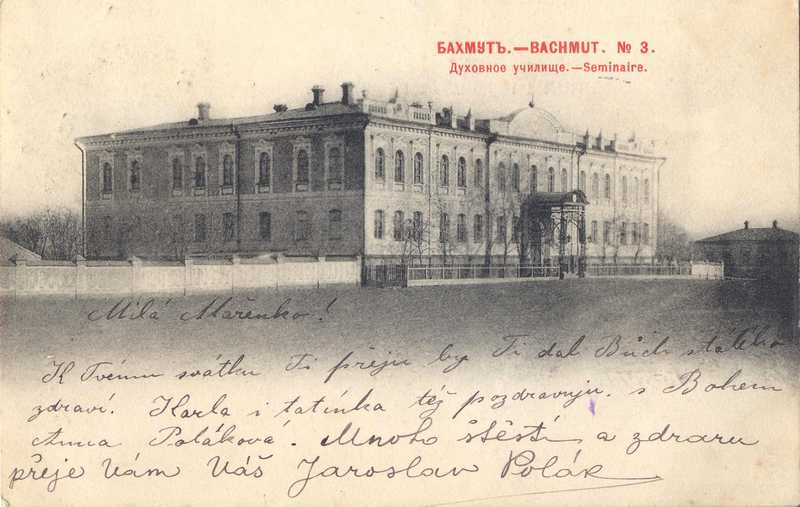 БАХМУТЪ.—BACHMUT. № 3.
Духовное училище.—Seminaire.
Milá Mařenko!
K Tvému svátku Ti přeju by Ti dal Bůch stálého
zdraví. Karla i tatínka též pozdravuju. s Bohem
Anna Poláková. Mnoho štěstí a zdraru
přeje Vám Váš Jaroslav Polák